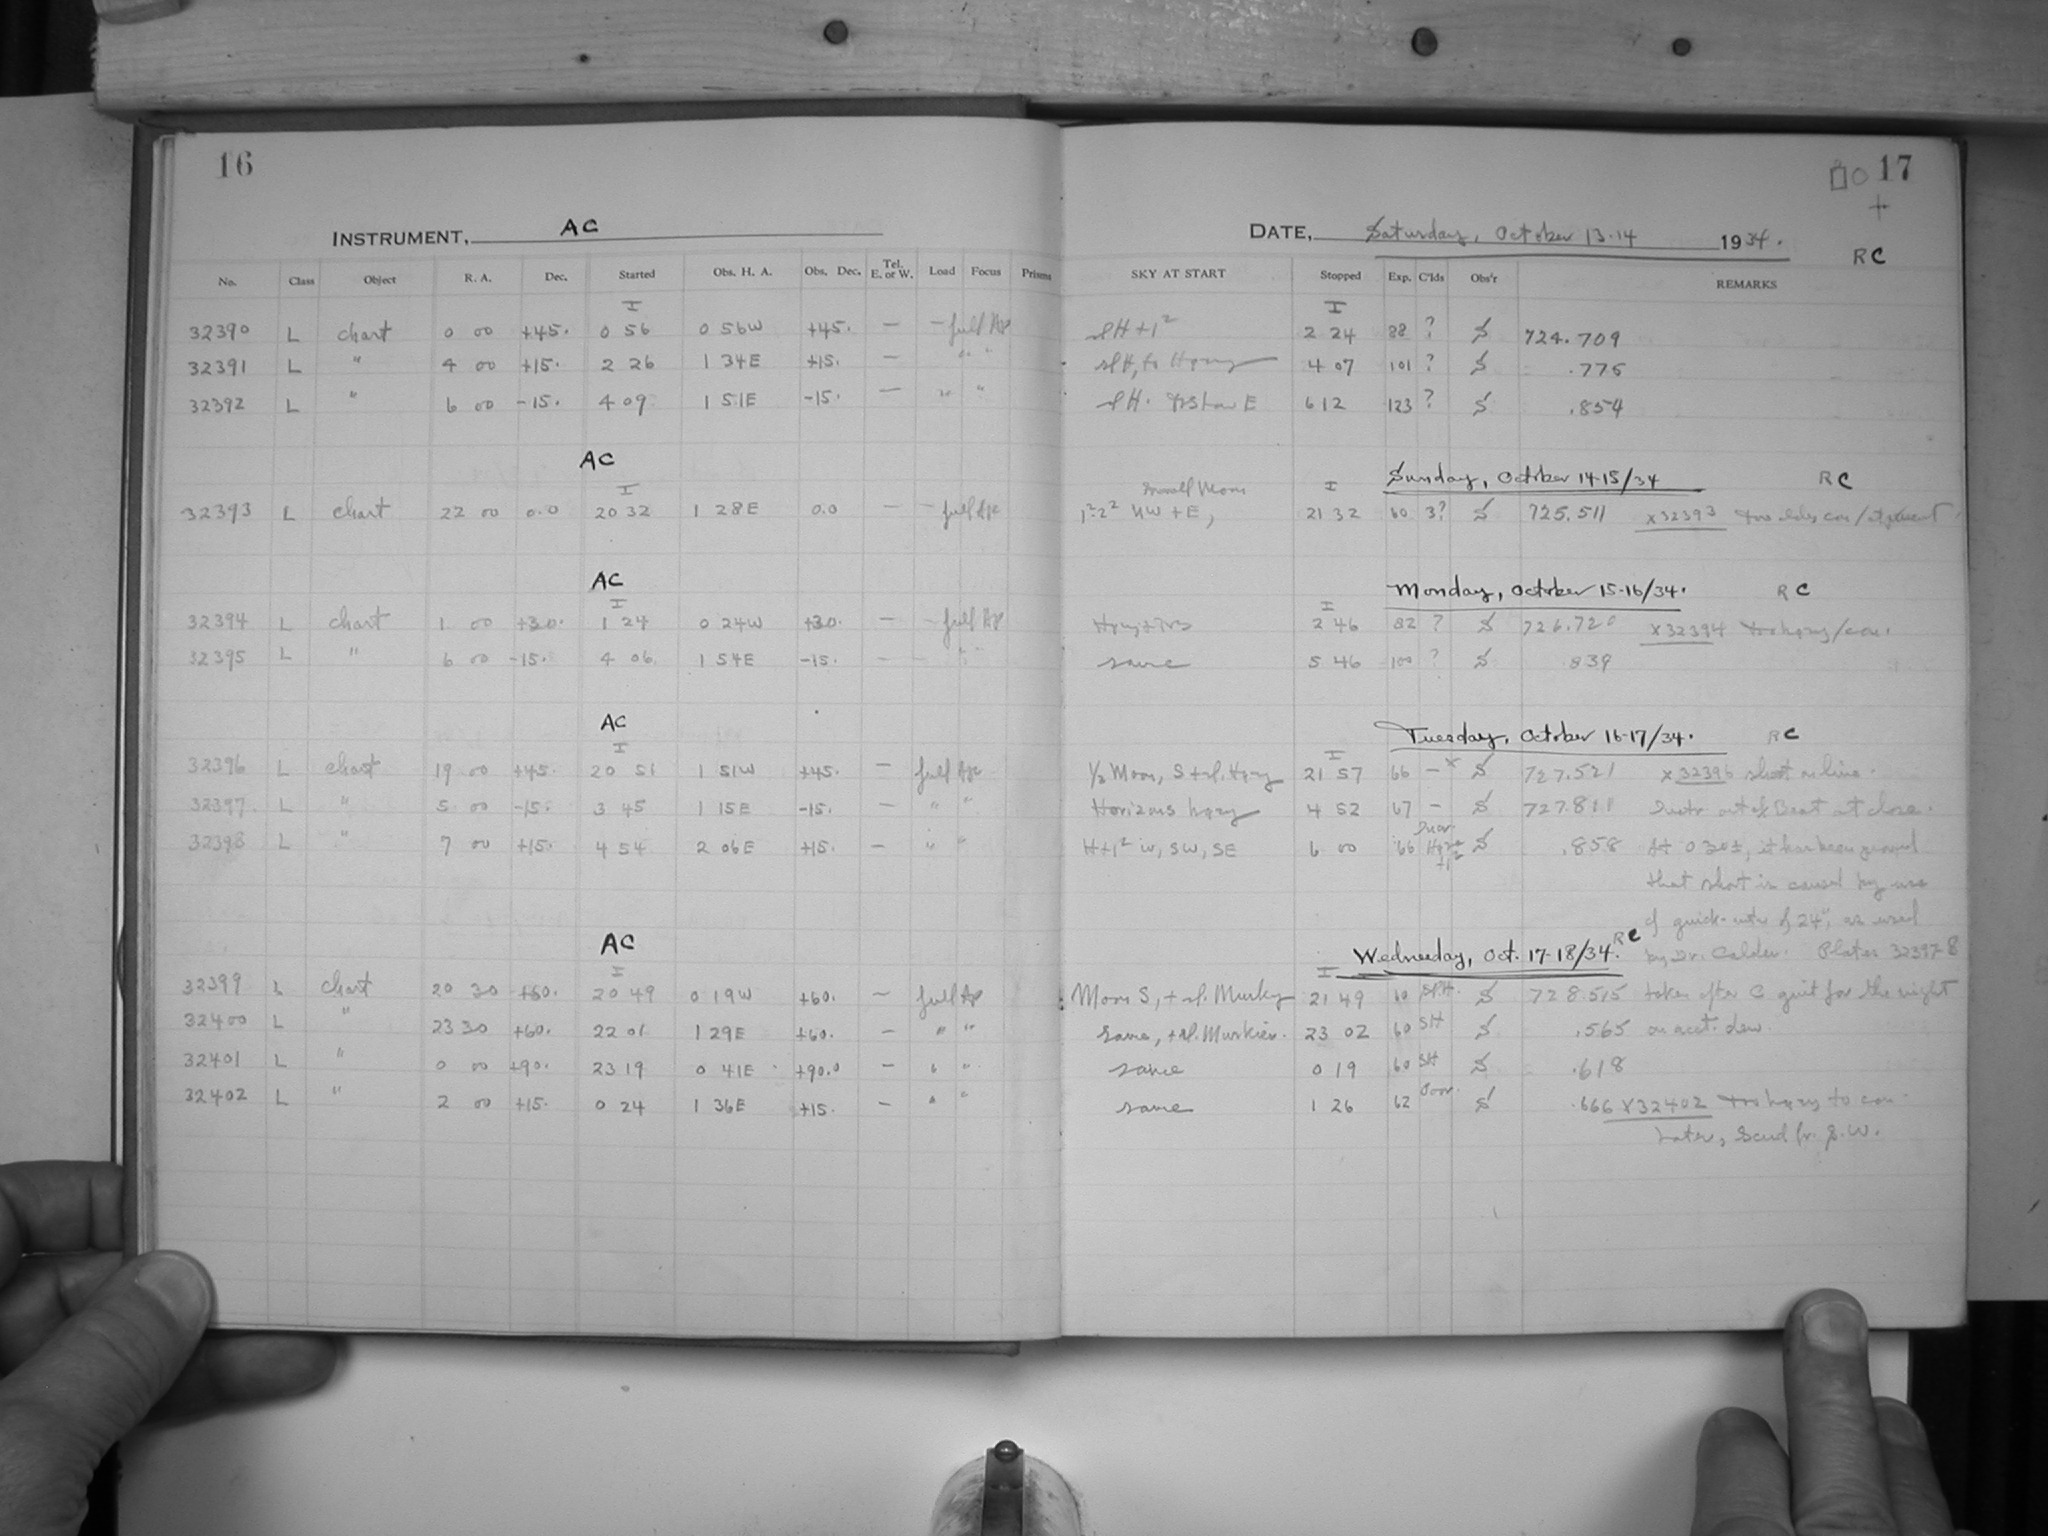 16
INSTRUMENT, AC
No. Class Object R. A. Dec. Started Obs. H. A. Obs. Dec. Tel. E. or W. Load Focus Prisms
I
32390 L chart 0 00 +45. 0 56 0 56W +45. — — full Ap
32391 L " 4 00 +15. 2 26 1 34E +15. — " "
32392 L " 6 00 -15. 4 09 1 51E -15. — " "
AC
I
32393 L chart 22 00 0.0 20 32 1 28E 0.0 — — full Ap
AC
I
32394 L chart 1 00 +30. 1 24 0 24W +30. — — full Ap
32395 L " 6 00 -15. 4 06 1 54E -15. — " "
AC
I
32396 L chart 19 00 +45. 20 51 1 51W +45. — full Ap
32397 L " 5 00 -15. 3 45 1 15E -15. — " "
32398 L " 7 00 +15. 4 54 2 06E +15. — " "
AC
I
32399 L chart 20 30 +60. 20 49 0 19W +60. — full Ap
32400 L " 23 30 +60. 22 01 1 29E +60. — " "
32401 L " 0 00 +90. 23 19 0 41E +90.0 — " "
32402 L " 2 00 +15. 0 24 1 36E +15. — " "
17
+
DATE, Saturday, October 13-14 1934.
RC
SKY AT START Stopped Exp. C'lds Obs'r REMARKS
I
sl H + 1² 2 24 88 ? S 724.709
sl H, to Hazy 4 07 101 ? S .776
sl H. E 6 12 123 ? S .854
Sunday, October 14-15/34 RC
Small Moon I
1²-2² NW + E, 21 32 60 3? S 725.511 x32393
Monday, October 15-16/34. RC
I
2 46 82 ? S 726.720 x32394 too hazy/con.
same 5 46 100 ? S .839
Tuesday, October 16-17/34. RC
I
1/2 Moon, S + sl. Hazy 21 57 66 —x S 727.521 x32396 short on line.
Horizons hazy 4 52 67 — S 727.811 Instr out of Beat at close.
H+1² W, SW, SE 6 00 66 S .858 At 0 30±, it has been found
that short is caused by use
of quick-mtr of 24", as used
Wednesday, Oct. 17-18/34. RC by Dr. Calder. Plates 32397-8
I
Moon S, + sl. Murky 21 49 60 Sl H. S 728.515 taken after C quit for the night
same, + sl. Murkier. 23 02 60 SH S .565 on acct. dew.
same 0 19 60 SH S .618
same 1 26 62 Poor. S .666 x32402 too hazy to con.
Later, Scud fr. S.W.